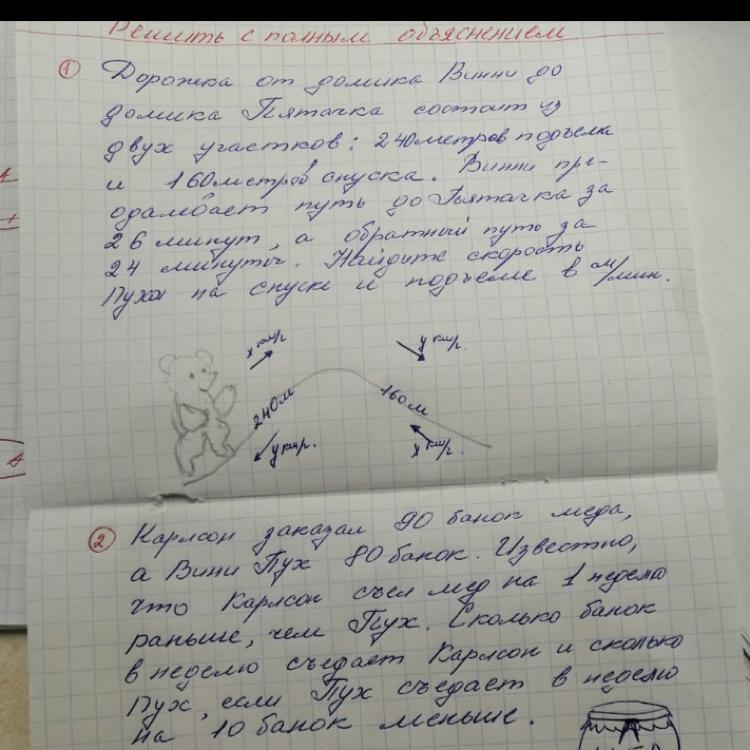 Решить с полным объяснением
① Дорожка от домика Винни до
домика Пятачка состоит из
двух участков: 240 метров подъема
и 160 метров спуска. Винни пре-
одалевает путь до Пятачка за
26 минут, а обратный путь за
24 минуты. Найдите скорость
Пуха на спуске и подъеме в м/мин.
x км/г. y км/г.
240м 160м
y км/г. x км/г.
② Карлсон заказал 90 банок меда,
а Вини Пух 80 банок. Известно,
что Карлсон съел мед на 1 неделю
раньше, чем Пух. Сколько банок
в неделю съедает Карлсон и сколько
Пух, если Пух съедает в неделю
на 10 банок меньше.